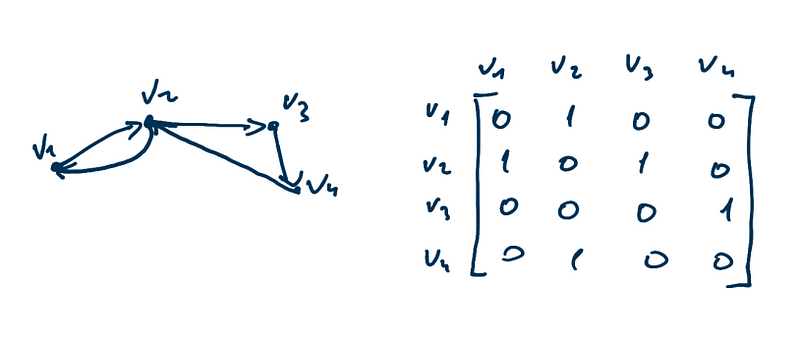 v2
v3
v1
v4
v1 v2 v3 v4
v1 0 1 0 0
v2 1 0 1 0
v3 0 0 0 1
v4 0 1 0 0